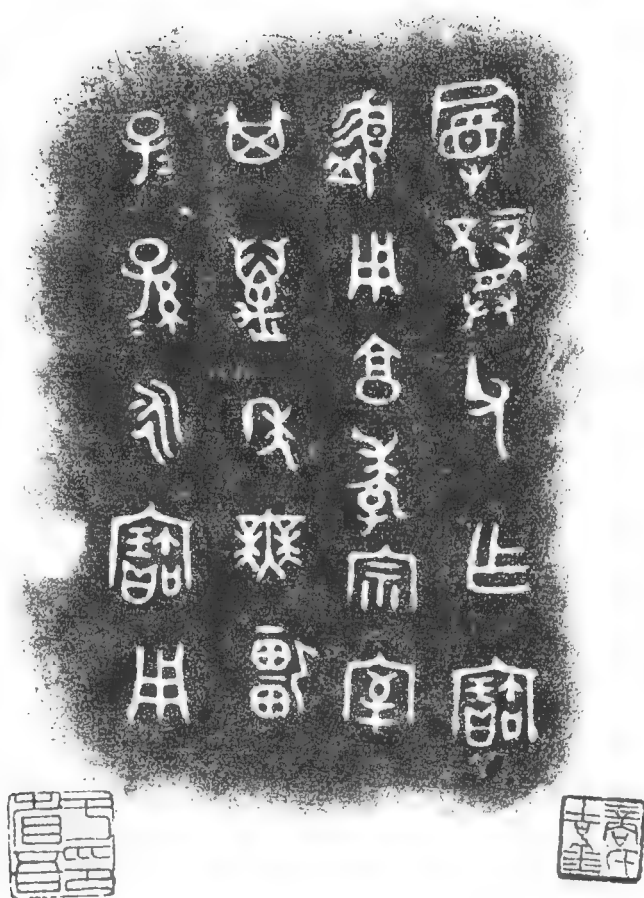 曼龏父乍寶
盨用享孝宗室
其萬年無疆
子＝孫＝永寶用